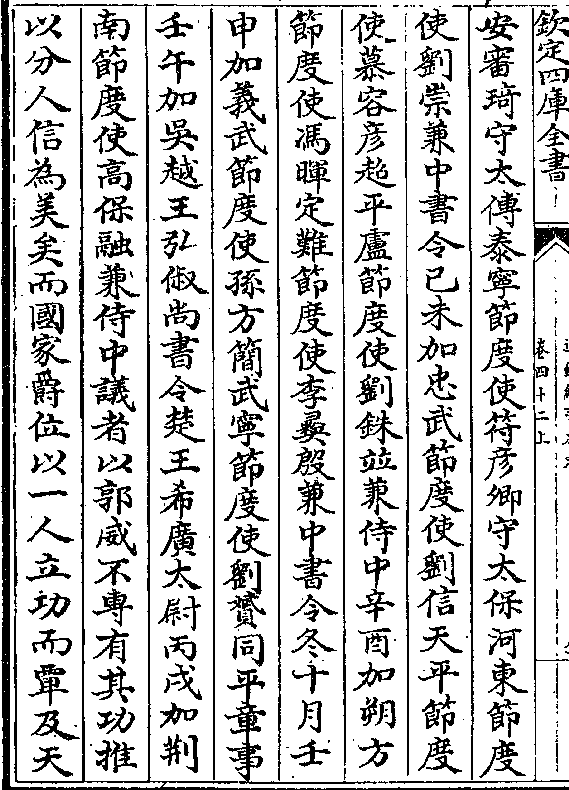 欽定四庫全書
卷四十二上
安審琦守太傅泰寧節度使符彦卿守太保河東節度
使劉崇兼中書令己未加忠武節度使劉信天平節度
使慕容彦超平盧節度使劉銖竝兼侍中辛酉加朔方
節度使馮暉定難節度使李彛殷兼中書令冬十月壬
申加義武節度使孫方簡武寧節度使劉贇同平章事
壬午加吳越王弘俶尚書令楚王希廣太尉丙戌加荆
南節度使高保融兼侍中議者以郭威不專有其功推
以分人信為美矣而國家爵位以一人立功而覃及天